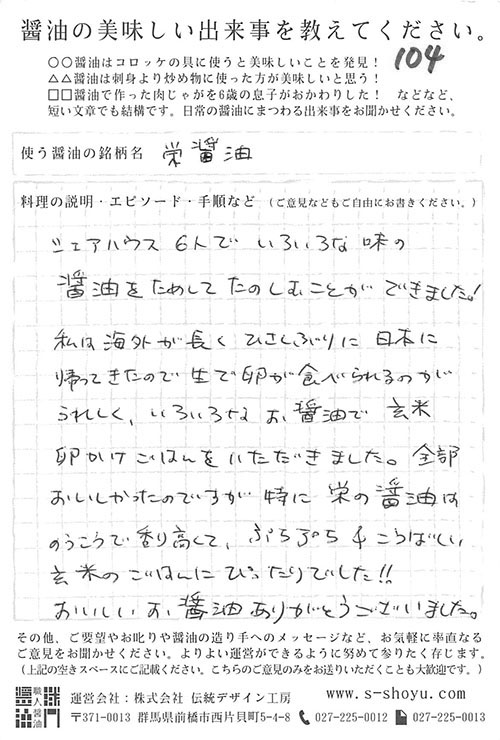 醤油の美味しい出来事を教えてください。
○○醤油はコロッケの具に使うと美味しいことを発見！
104
△△醤油は刺身より炒め物に使った方が美味しいと思う！
□□醤油で作った肉じゃがを6歳の息子がおかわりした！　などなど、
短い文章でも結構です。日常の醤油にまつわる出来事をお聞かせください。
使う醤油の銘柄名　栄醤油
料理の説明・エピソード・手順など（ご意見などもご自由にお書きください。）
シェアハウス 6人で いろいろな 味の
醤油をためして たのしむことが できました！
私は海外が長く ひさしぶりに 日本に
帰ってきたので 生で卵が食べられるのが
うれしく、いろいろな お醤油で 玄米
卵かけごはんをいただきました。全部
おいしかったのですが 特に 栄の醤油は
のうこうで香り高くて、ぷちぷち & こうばしい
玄米のごはんにぴったりでした!!
おいしい お醤油ありがとうございました。
その他、ご要望やお叱りや醤油の造り手へのメッセージなど、お気軽に率直なる
ご意見をお聞かせください。よりよい運営ができるように努めて参りたく存じます。
（上記の空きスペースにご記載ください。こちらのご意見のみをお送りいただくことも大歓迎です。）
職人醤油
運営会社：株式会社 伝統デザイン工房　www.s-shoyu.com
〒371-0013 群馬県前橋市西片貝町5-4-8　027-225-0012　027-225-0013